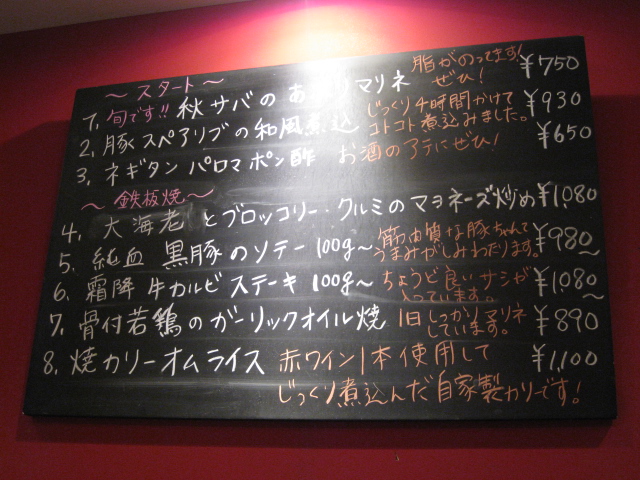 〜スタート〜
1. 旬です!! 秋サバの あ リマリネ 脂がのってます! ぜひ! ¥750
2. 豚スペアリブの和風煮込 じっくり4時間かけて コトコト煮込みました。 ¥930
3. ネギタン パロマ ポン酢 お酒のアテにぜひ! ¥650
〜鉄板焼〜
4. 大海老とブロッコリー・クルミのマヨネーズ炒め ¥1080
5. 純血 黒豚のソテー 100g〜 うまみがしみわたります。 ¥980〜
6. 霜降 牛カルビステーキ 100g〜 ちょうど良いサシが 入っています。 ¥1080〜
7. 骨付若鶏のガーリックオイル焼 1日しっかりマリネ しています。 ¥890
8. 焼カリーオムライス 赤ワイン1本使用して ¥1,100
じっくり煮込んだ自家製カリーです!